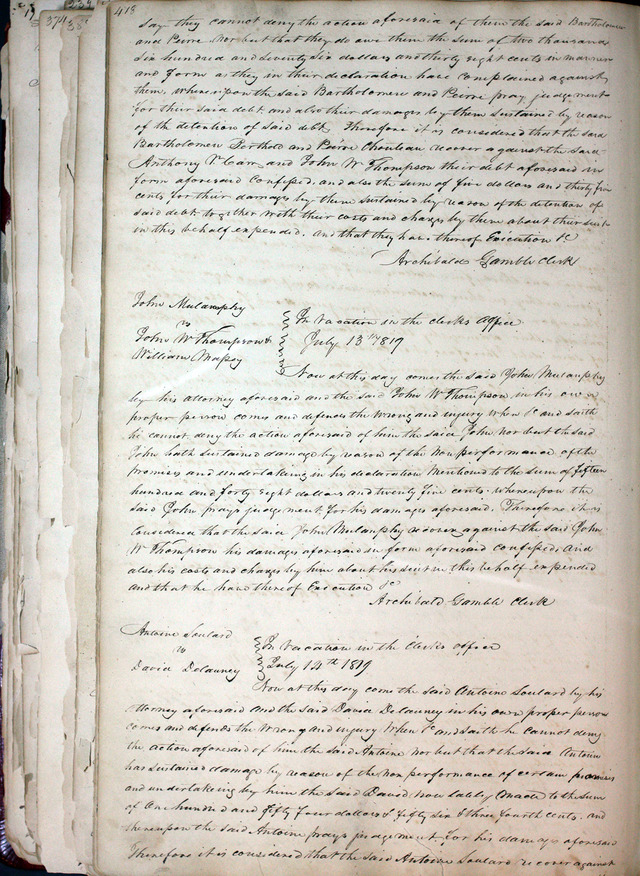 374
38
418
Say they cannot deny the action aforesaid of them the said Bartholomew
and Pierre nor but that they do owe them the sum of two thousand
Six hundred and Seventy Six dollars and thirty eight cents in manner
and form as they in their declaration have complained against
them, whereupon the said Bartholomew and Pierre pray judgement
for their said debt and also their damages by them sustained by reason
of the detention of said debt. Therefore it is considered that the said
Bartholomew Berthold and Pierre Chouteau recover against the said
Anthony V Carr and John W Thompson their debt aforesaid in
form aforesaid Confessed, and also the sum of five dollars and thirty five
cents for their damages by them sustained by reason of the detention of
said debt together with their costs and charges by them about their suit
in this behalf expended, and that they have thereof Execution &c
Archibald Gamble Clerk
John Mulanphy
vs
John W Thompson &
William Massy
In vacation in the clerks office
July 13th 1819
Now at this day comes the said John Mulanphy
by his attorney aforesaid and the said John W Thompson in his own
proper person comes and defends the wrong and injury When &c and saith
he cannot deny the action aforesaid of him the said John nor but the said
John hath sustained damage by reason of the non performance of the
promises and undertaking in his declaration Mentioned to the sum of fifteen
hundred and forty eight dollars and twenty five cents. whereupon the
said John prays judgement for his damages aforesaid. Therefore it is
Considered that the said John Mulanphy recover against the said John
W Thompson his damages aforesaid in form aforesaid confessed, and
also his costs and charges by him about his suit in this behalf expended
and that he have thereof Execution &c
Archibald Gamble Clerk
Antoine Soulard
vs
David Delauney
In vacation in the Clerks office
July 14th 1819
Now at this day come the said Antoine Soulard by his
attorney aforesaid and the said David Delauney in his own proper person
comes and defends the wrong and injury When &c and saith he cannot deny
the action aforesaid of him the said Antoine nor but that the said Antoine
has sustained damage by reason of the non performance of certain promises
and undertaking by him the said David now lately made to the sum
of One hundred and fifty four dollars & fifty six & three fourth cents. and
thereupon the said Antoine prays judgement for his damages aforesaid
Therefore it is considered that the said Antoine Soulard recover against